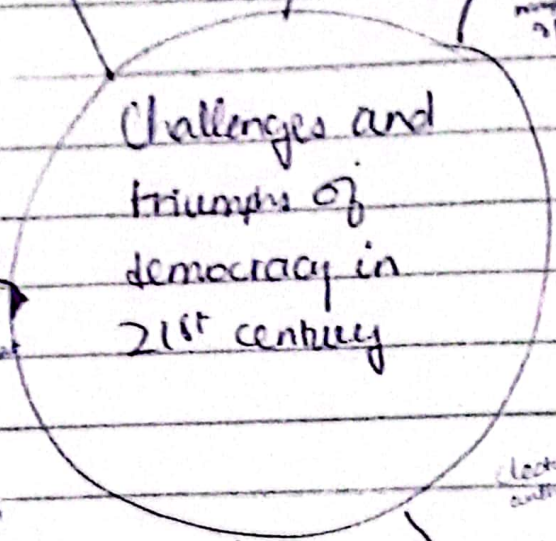 Challenges and
triumphs of
democracy in
21st century